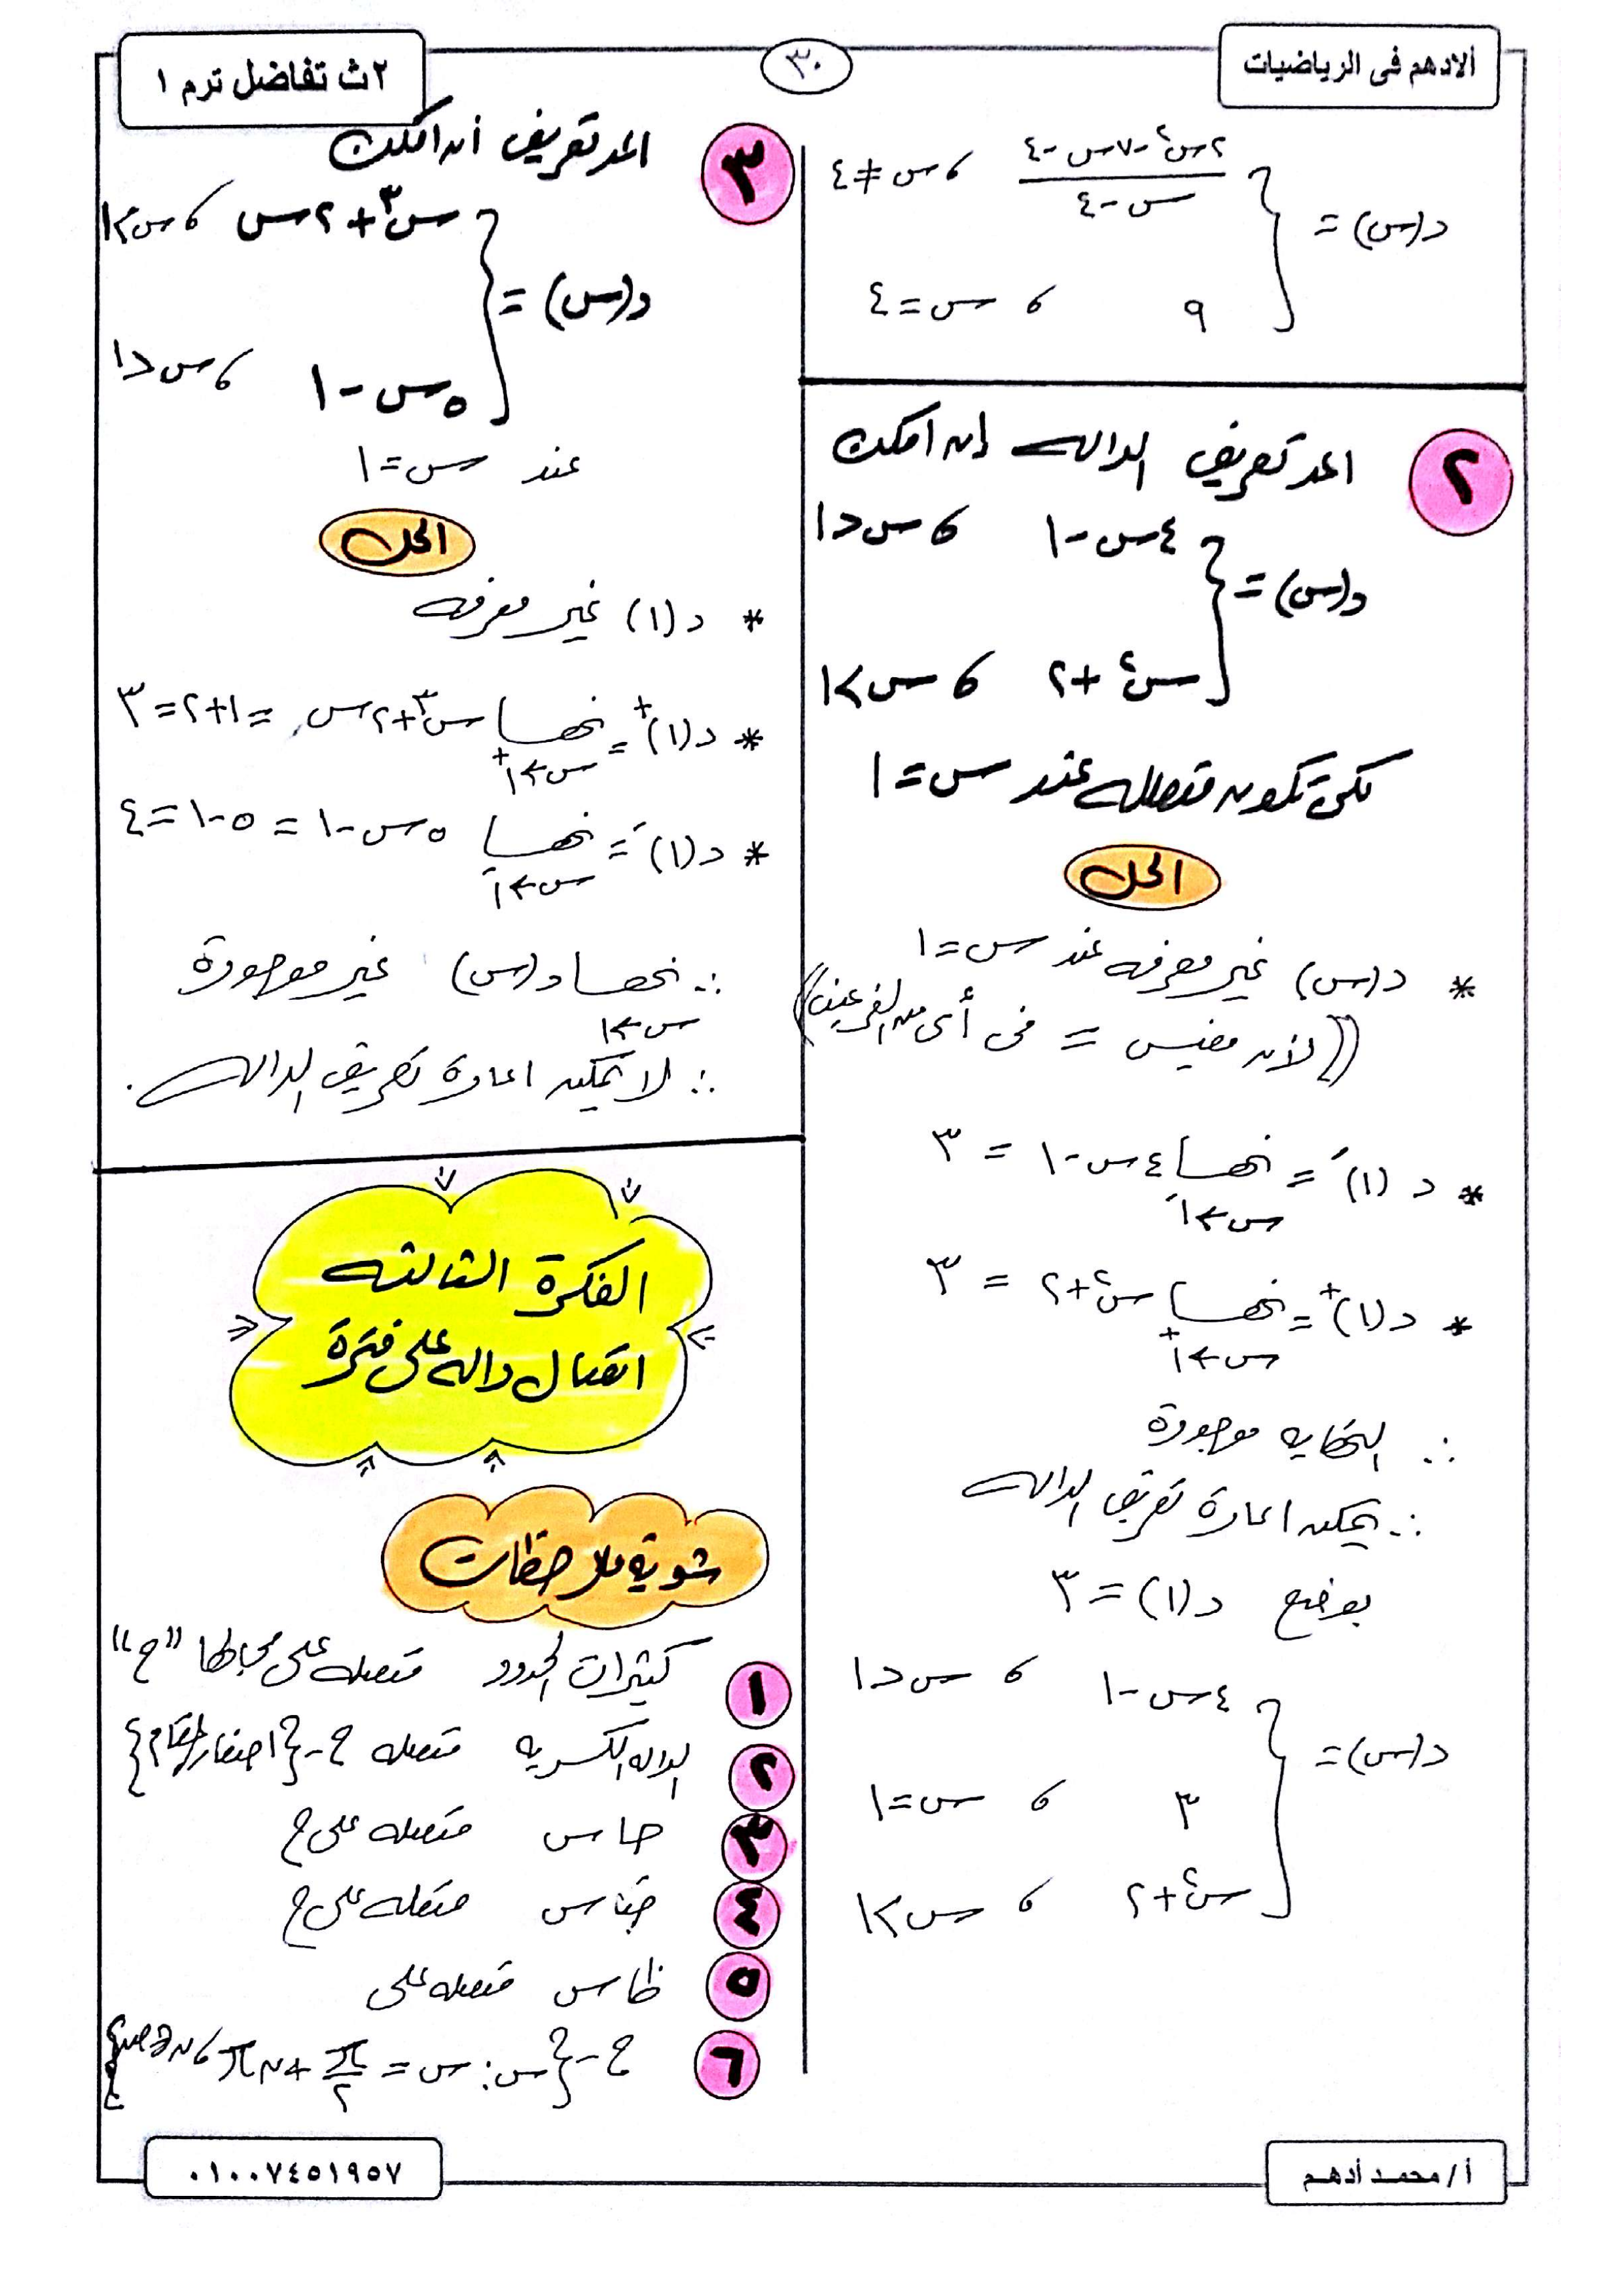 ألادهم فى الرياضيات
٣٠
٢ث تفاضل ترم ١
د(س) = { (٢س² - ٧س - ٤) / (س - ٤) ، س ≠ ٤
٩ ، س = ٤
٢ اعد تعريف الداله إن امكن
د(س) = { ٤س - ١ ، س < ١
س² + ٢ ، س > ١
لكى تكون متصله عند س = ١
الحل
* د(س) غير معرفه عند س = ١
((لأن مفيش = فى أى من الفرعين))
* د(١)⁻ = نهــا س←١⁻ ٤س - ١ = ٣
* د(١)⁺ = نهــا س←١⁺ س² + ٢ = ٣
∴ النهايه موجودة
∴ يمكن اعادة تعريف الداله
بوضع د(١) = ٣
د(س) = { ٤س - ١ ، س < ١
٣ ، س = ١
س² + ٢ ، س > ١
٣ اعد تعريف إن امكن
د(س) = { س³ + ٢س ، س > ١
٥س - ١ ، س < ١
عند س = ١
الحل
* د(١) غير معرفه
* د(١)⁺ = نهــا س←١⁺ س³ + ٢س = ١ + ٢ = ٣
* د(١)⁻ = نهــا س←١⁻ ٥س - ١ = ٥ - ١ = ٤
∴ نهــا س←١ د(س) غير موجودة
∴ لا يمكن اعادة تعريف الداله.
الفكرة الثالثه
اتصال داله على فترة
شوية ملاحظات
١ كثيرات الحدود متصله على مجالها "ح"
٢ الداله الكسريه متصله ح - {اصفار المقام}
٣ حا س متصله على ح
٤ حتا س متصله على ح
٥ ظا س متصله على
٦ ح - {س : س = π/٢ + ن π ، ن ∈ ص}
أ / محمـد أدهـم
٠١٠٠٧٤٥١٩٥٧